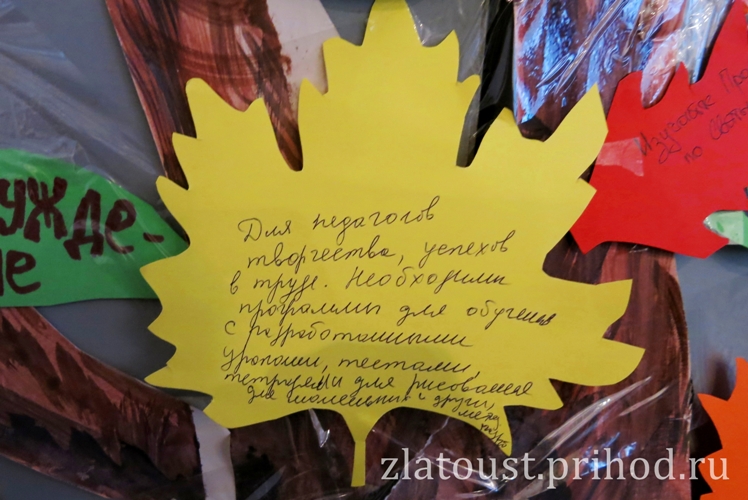 Для педагогов
творчества, успехов
в труде. Необходимы
программы для обучения
с разработанными
уроками, тестами,
тетрадями для рисования
для маленьких и други,
ужде-
ие
Изучение
по
zlatoust.prihod.ru